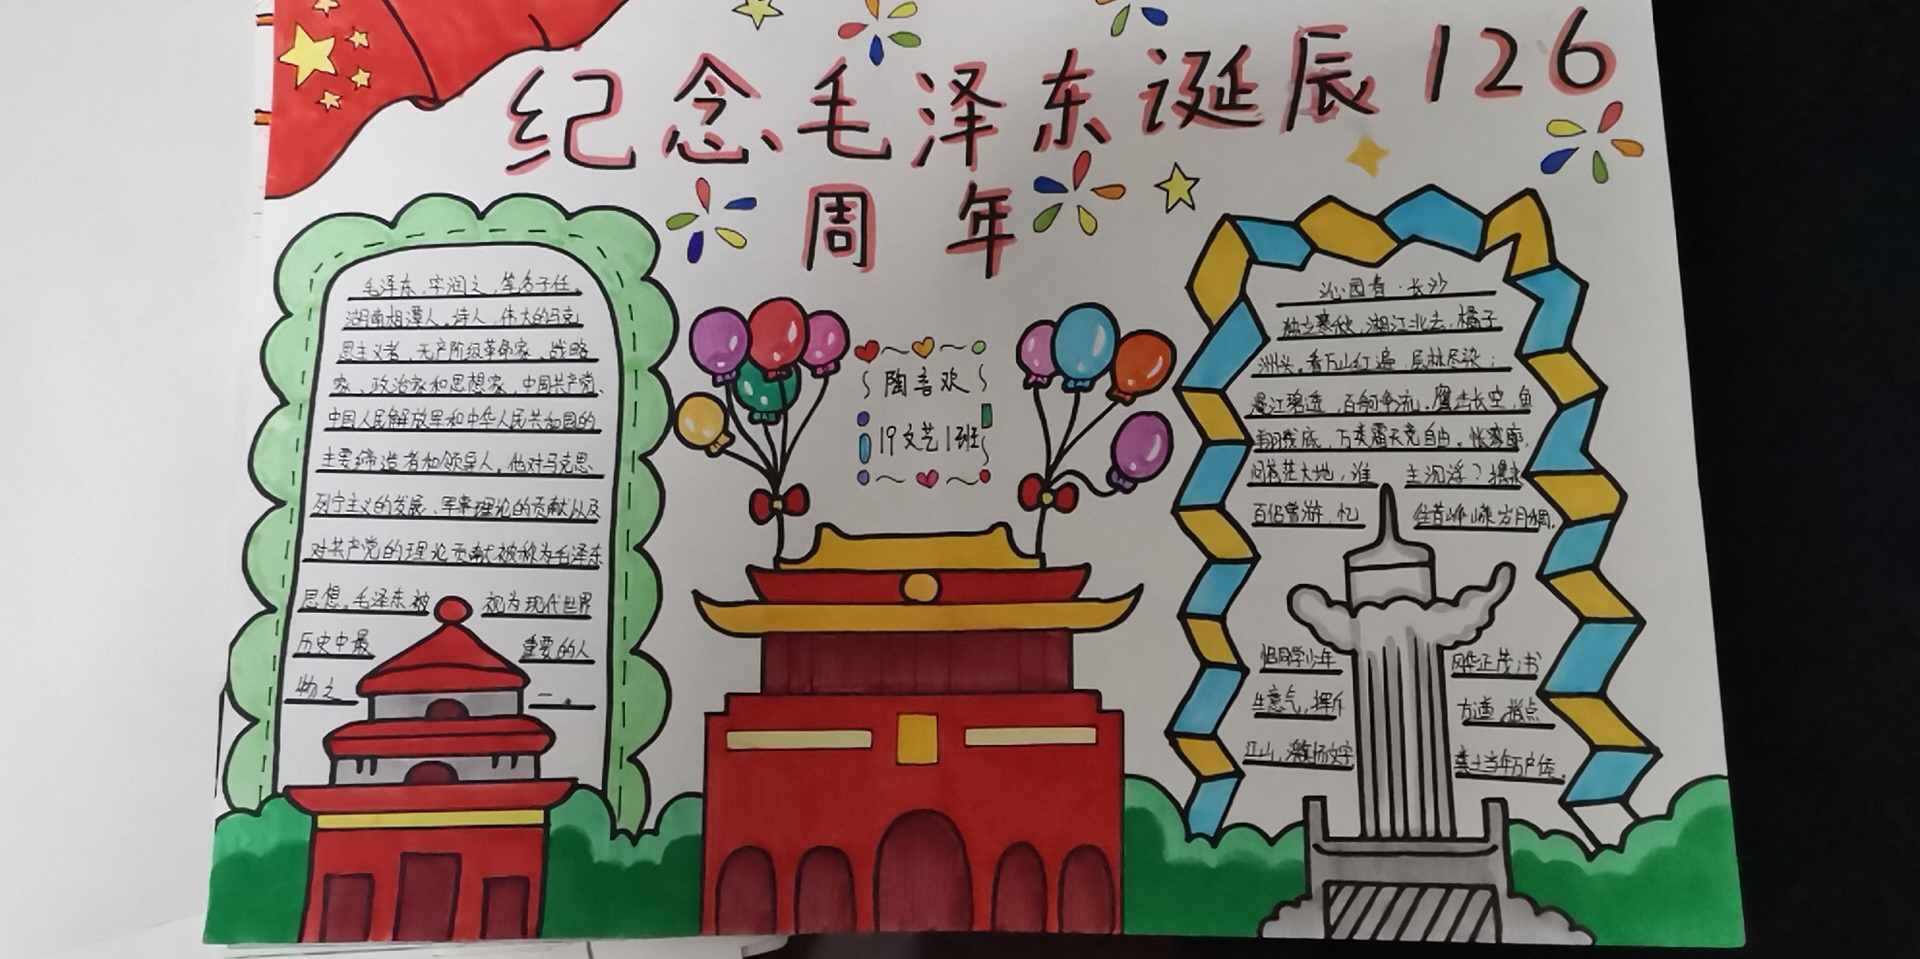 纪念毛泽东诞辰126
周年
毛泽东,字润之,笔名子任。
湖南湘潭人。诗人,伟大的马克
思主义者,无产阶级革命家、战略
家、政治家和思想家,中国共产党、
中国人民解放军和中华人民共和国的
主要缔造者和领导人。他对马克思
列宁主义的发展、军事理论的贡献以及
对共产党的理论贡献被称为毛泽东
思想。毛泽东被 视为现代世界
历史中最 重要的人
物之 一。
陶言欢
19文艺1班
沁园春·长沙
独立寒秋,湘江北去,橘子
洲头。看万山红遍,层林尽染;
漫江碧透,百舸争流。鹰击长空,鱼
翔浅底,万类霜天竞自由。怅寥廓,
问苍茫大地,谁 主沉浮?携来
百侣曾游,忆 往昔峥嵘岁月稠。
恰同学少年 风华正茂;书
生意气,挥斥 方遒。指点
江山,激扬文字 粪土当年万户侯。